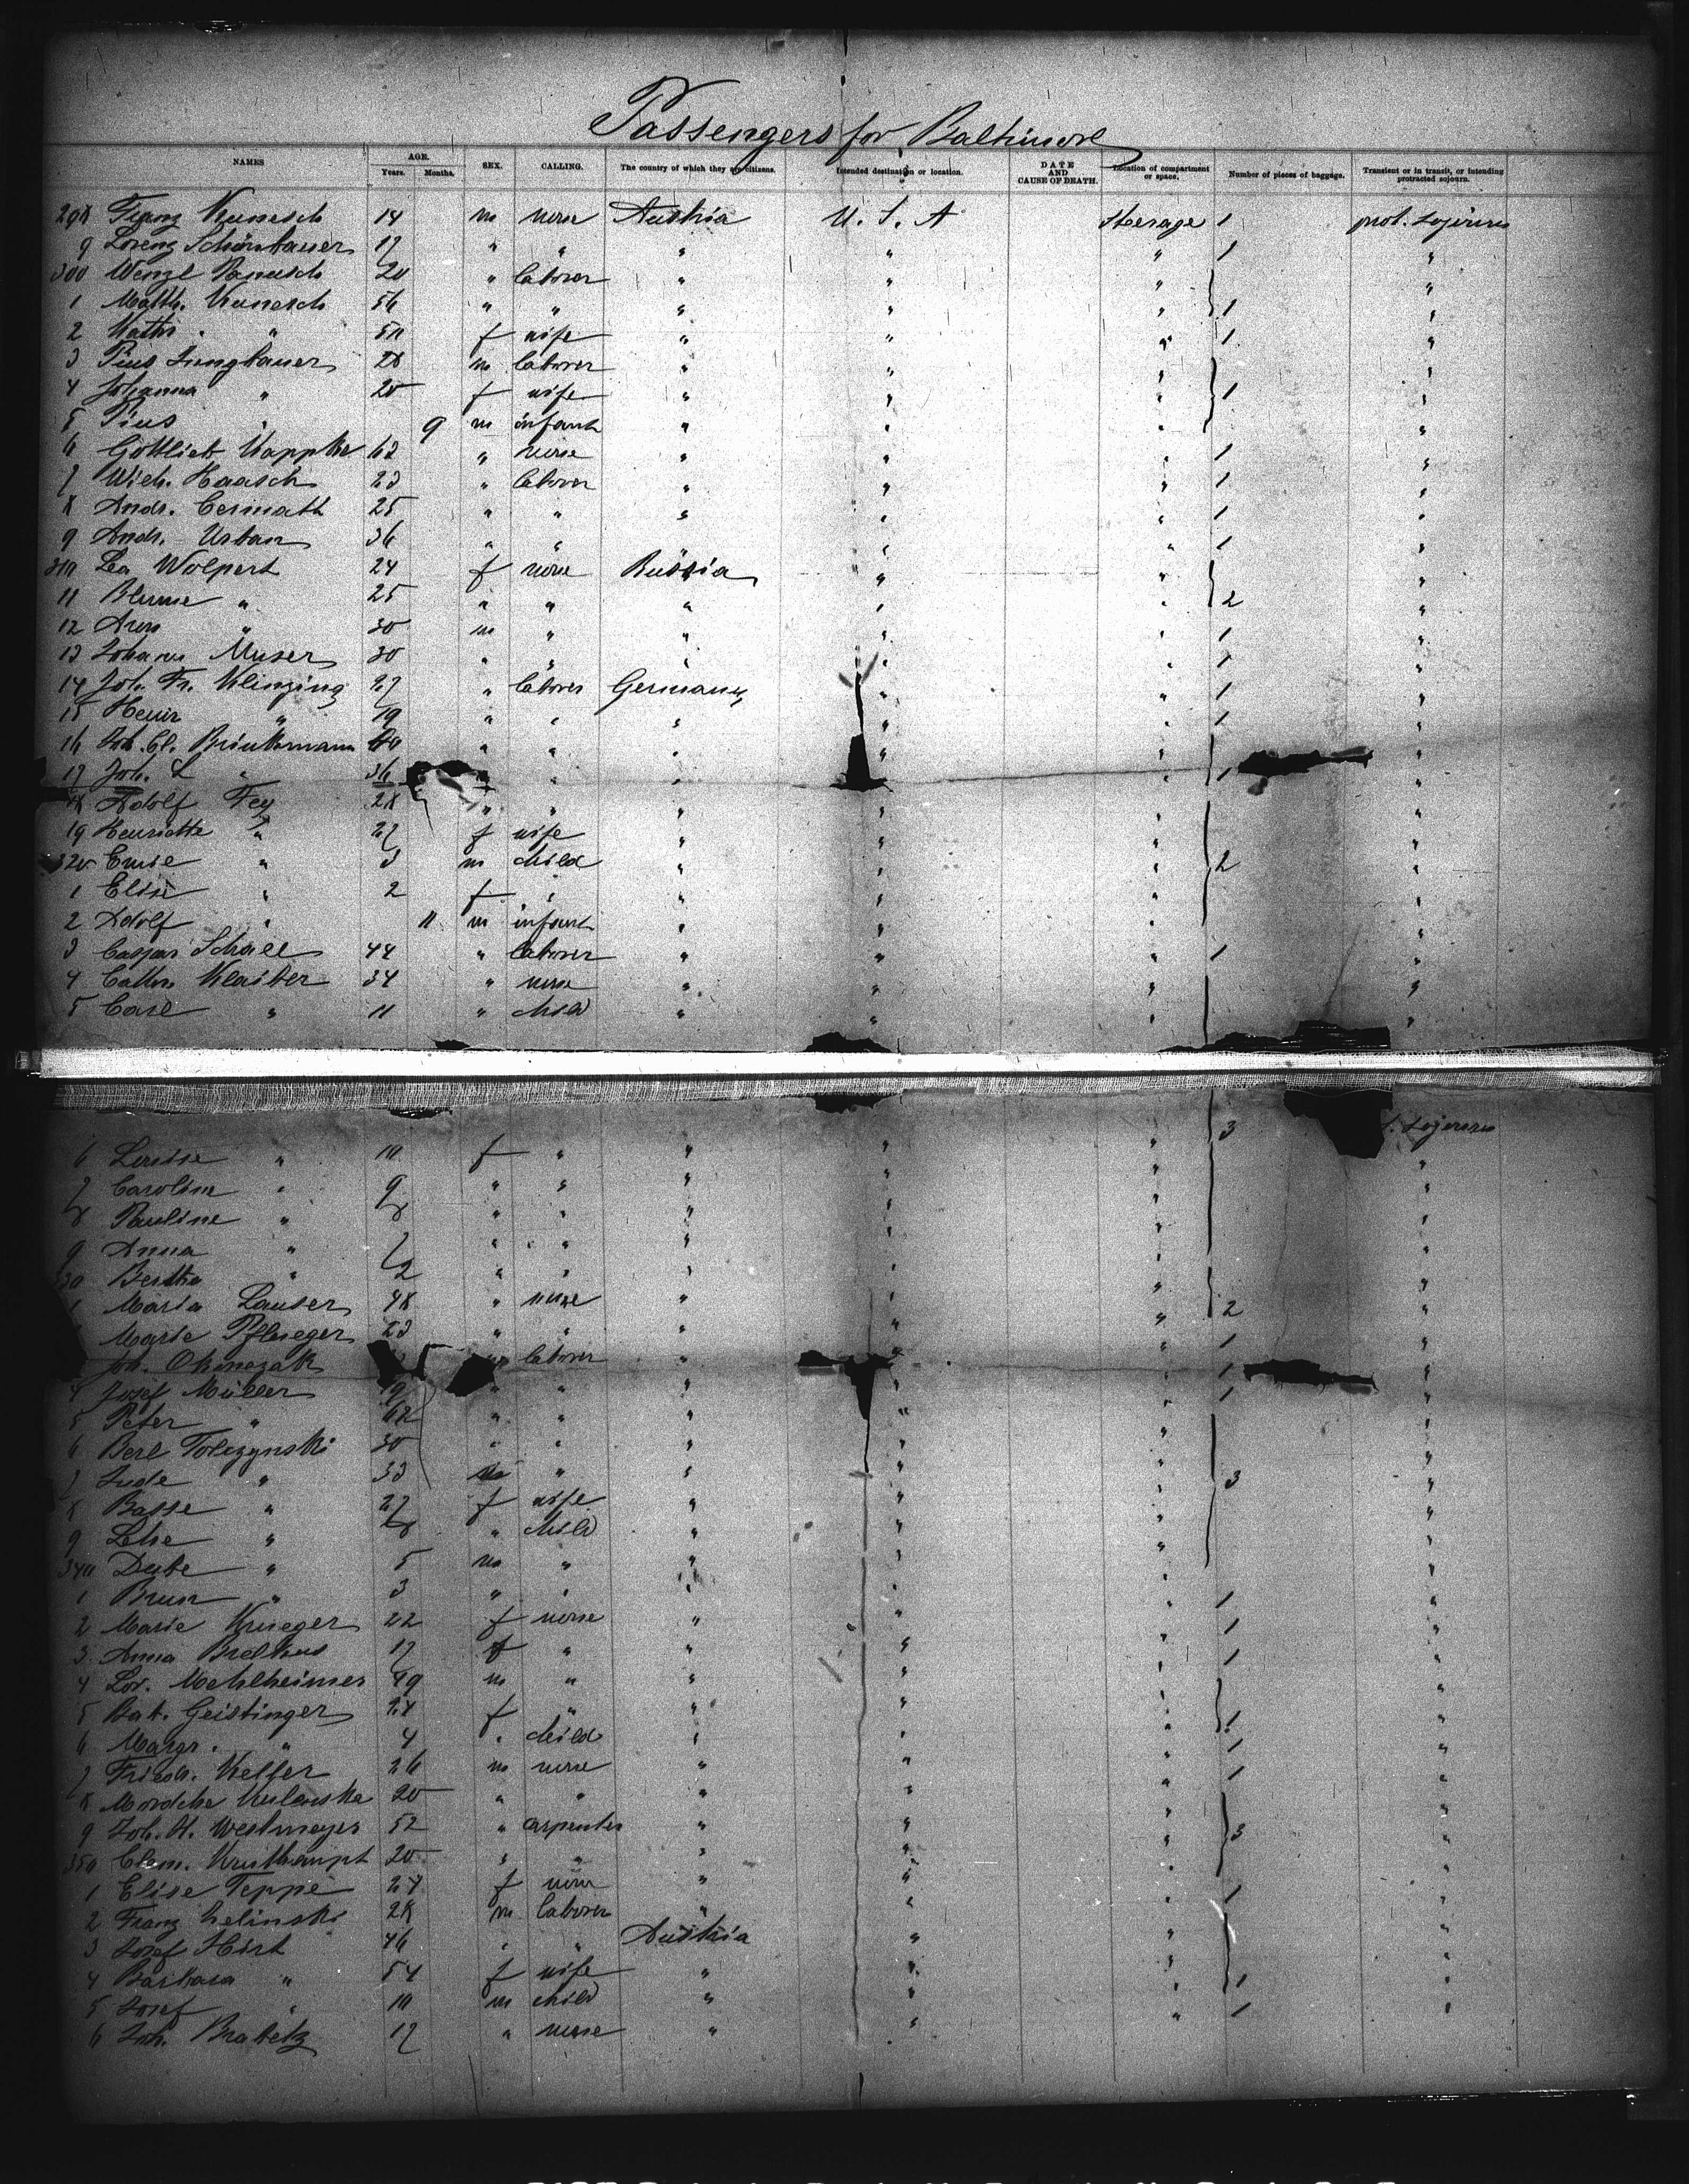 Passengers for Baltimore
NAMES AGE. Years. Months. SEX. CALLING. The country of which they are citizens. Intended destination or location. DATE AND CAUSE OF DEATH. Location of compartment or space. Number of pieces of baggage. Transient or in transit, or intending protracted sojourn.
298 Franz Kunesch 14 m none Austria U. S. A Steerage 1 prot. sojourn
9 Lorenz Schönbauer 17 " " " " " 1 "
300 Wenzl Panusch 20 " laborer " " " "
1 Math. Kunesch 56 " " " " " 1 "
2 Kath. " 50 f wife " " " 1 "
3 Pius Jungbauer 28 m laborer " " " "
4 Johanna " 20 f wife " " " 1 "
5 Pius " 9 m infant " " " "
6 Gottlieb Kappke 62 " none " " " 1 "
7 Wilh. Haasch 23 " laborer " " " 1 "
8 Andr. Cermath 25 " " " " " 1 "
9 Andr. Urban 36 " " " " " 1 "
310 Lea Wolpert 24 f none Russia " " "
11 Blume " 25 " " " " " 2 "
12 Aron " 30 m " " " " 1 "
13 Johann Muser 30 " " " " " 1 "
14 Joh. Fr. Klinzing 27 " laborer Germany " " 1 "
15 Heinr " 19 " " " " " 1 "
16 Joh. Cl. Brinkmann " " " " " "
17 Joh. L " 36 " " " " 1 "
18 Adolf Fey 28 " " " " " "
19 Henriette " 27 f wife " " " "
320 Emil " 3 m child " " " 2 "
1 Elise " 2 f " " " " "
2 Adolf " 11 m infant " " " "
3 Caspar Schall 44 " laborer " " " 1 "
4 Cathr. Klaiber 34 " none " " " "
5 Carl " 11 " child " " "
3 sojourn
6 Louise " 10 f " " " " "
7 Carolin " 9 " " " " " "
8 Pauline " 8 " " " " " "
9 Anna " 7 " " " " " "
330 Bertha " 2 " " " " "
1 Maria Lauser 48 " none " " " 2 "
Marie Pflueger 23 " " " " " 1 "
Joh. laborer " " 1 "
4 Josef Müller 19 " " " " " 1 "
5 Peter " 62 " " " " " "
6 Berl Tolczynski 30 " " " " " "
7 Jude " 33 m " " " " 3 "
8 Basse " 27 f wife " " " "
9 Lehe " 8 " child " " " "
340 Dube " 5 m " " " " "
1 Brun " 3 " " " " " 1 "
2 Marie Krueger 22 f none " " " 1 "
3 Anna 17 f " " " " 1 "
4 Lor. Mehlheimer 49 m " " " " "
5 Bab. Geistinger 24 f " " " " 1 "
6 Margr. " 4 " child " " " 1 "
7 Friedr. Keller 26 m none " " " 1 "
8 Mordche 20 " " " " " "
9 Joh. H. Westmeyer 52 " carpenter " " " 3 "
350 Clem. Kruthaupt 20 " " " " " "
1 Elise Teppe 24 f none " " " 1
2 Franz Zelinski 28 m laborer " " "
3 Josef Hirt 46 " " Austria " " "
4 Barbara " 54 f wife " " " 1 "
5 Josef " 10 m child " " " 1 "
6 Joh. Brabetz 17 " none " "